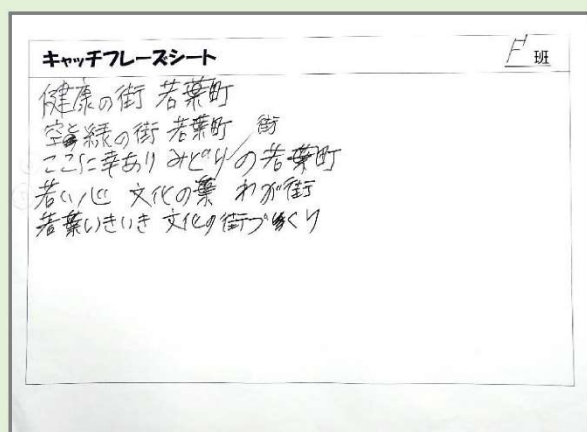 キャッチフレーズシート F班
健康の街 若葉町
空と緑の街 若葉町
ここに幸あり みどりの街 若葉町
若い心 文化の葉 わが街
若葉いきいき 文化の街づくり